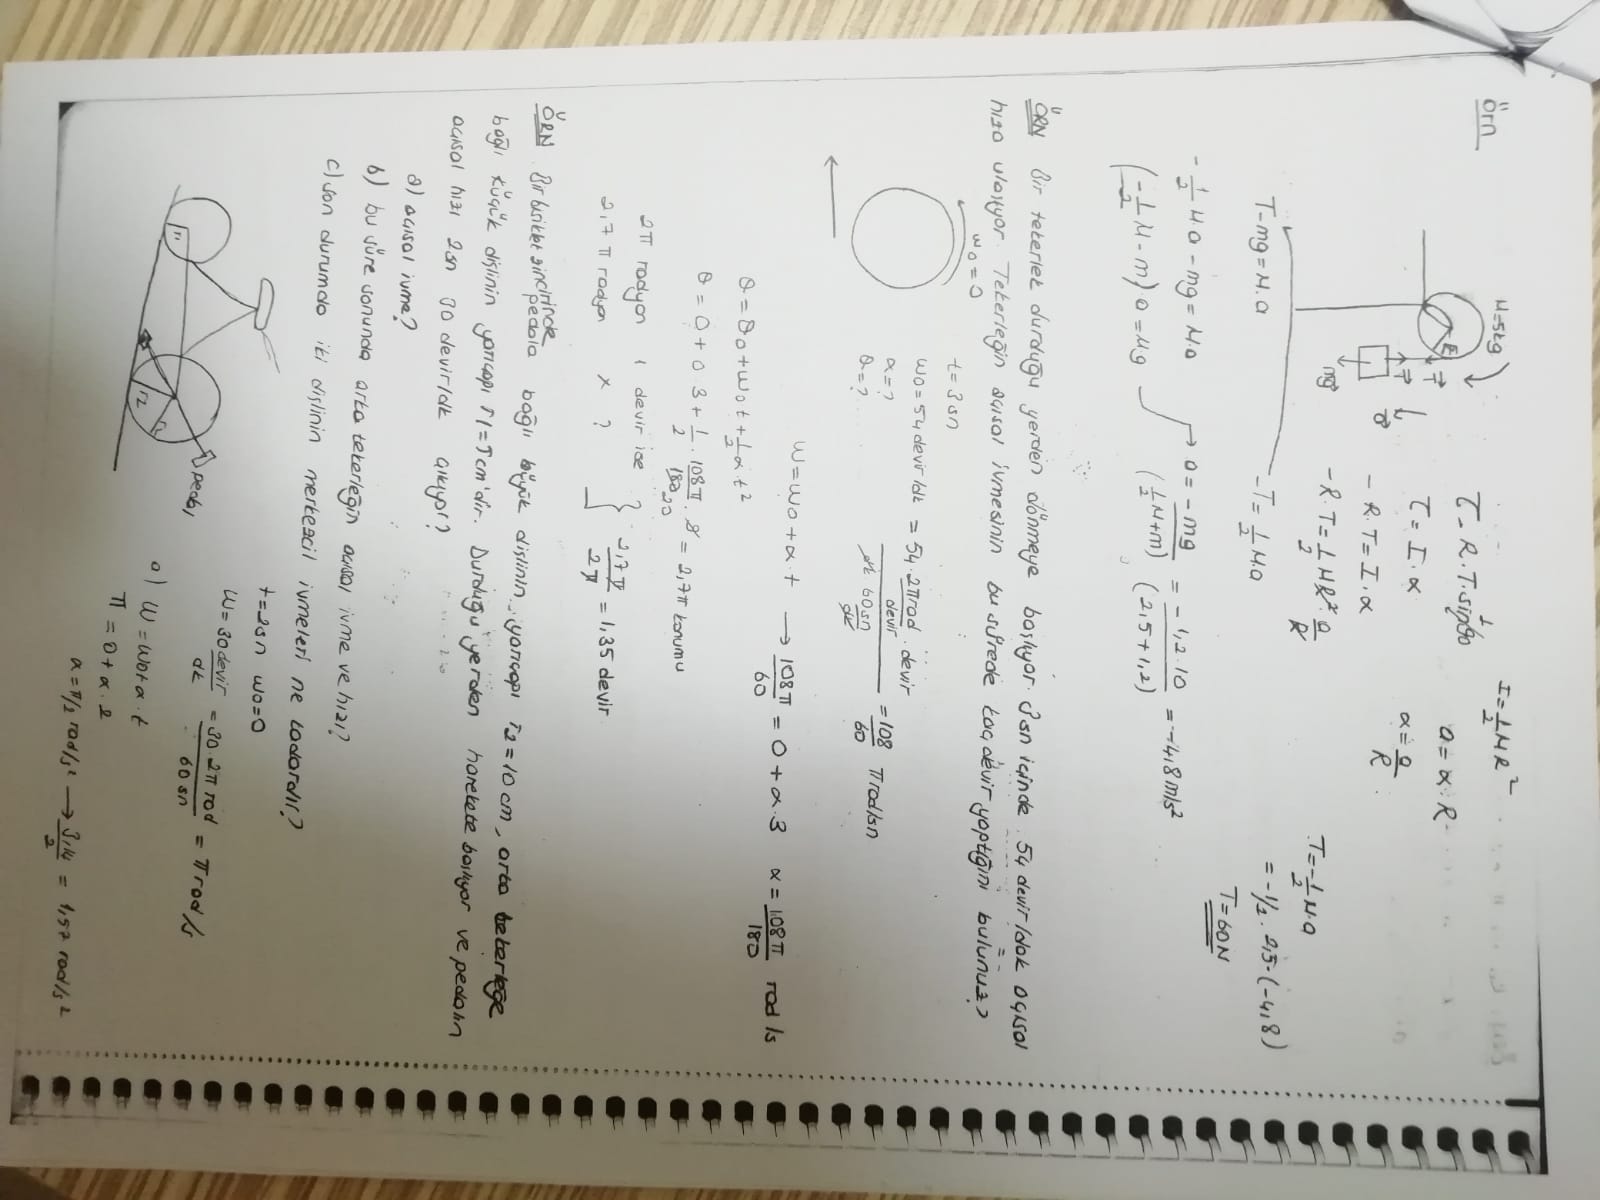 Örn
M=5kg
R
T
T
a
mg
τ = R.T.sin90 1
τ = I.α
- R.T = I.α
-R.T = 1/2 MR² . a/R
I = 1/2 MR²
a = α.R
α = a/R
T-mg = M.a
-T = 1/2 M.a
T = -1/2 M.a
= -1/2 . 2,5.(-4,8)
T = 60N
-1/2 M.a - mg = M.a
(-1/2 M - m) a = Mg → a = -mg/(1/2 M+m) = -1,2.10/(2,5+1,2) = -4,8 m/s²
ÖRN Bir tekerlek durduğu yerden dönmeye başlıyor. 3sn içinde 54 devir/dak açısal
hıza ulaşıyor. Tekerleğin açısal ivmesinin bu sürede kaç devir yaptığını bulunuz?
w0=0
t=3sn
w0=54 devir/dk = 54.2πrad/devir . devir / dk 60sn/dk = 108/60 πrad/sn
α=?
θ=?
w=w0+α.t → 108π/60 = 0+α.3 α = 108π/180 rad/s
θ=θ0+w0t+1/2 α.t²
θ = 0+0.3+1/2 . 108π/180 20 . 9 = 2,7π konumu
2π radyan 1 devir ise
2,7π radyan x ? } 2,7π/2π = 1,35 devir
ÖRN Bir bisiklet zincirinde
pedala bağlı büyük dişlinin yarıçapı r2=10 cm, arka tekerleğe
bağlı küçük dişlinin yarıçapı r1=5cm'dir. Durduğu yerden harekete başlıyor ve pedalın
açısal hızı 2sn 30 devir/dk çıkıyor?
a) açısal ivme?
b) bu süre sonunda arka tekerleğin açısal ivme ve hızı?
c) son durumda iki dişlinin merkezcil ivmeleri ne kadardır?
t=2sn w0=0
w = 30 devir/dk = 30.2π rad/60 sn = π rad/s
pedal
r1
r2
r2
a) w = w0+α.t
π = 0+α.2
α = π/2 rad/s² → 3,14/2 = 1,57 rad/s²